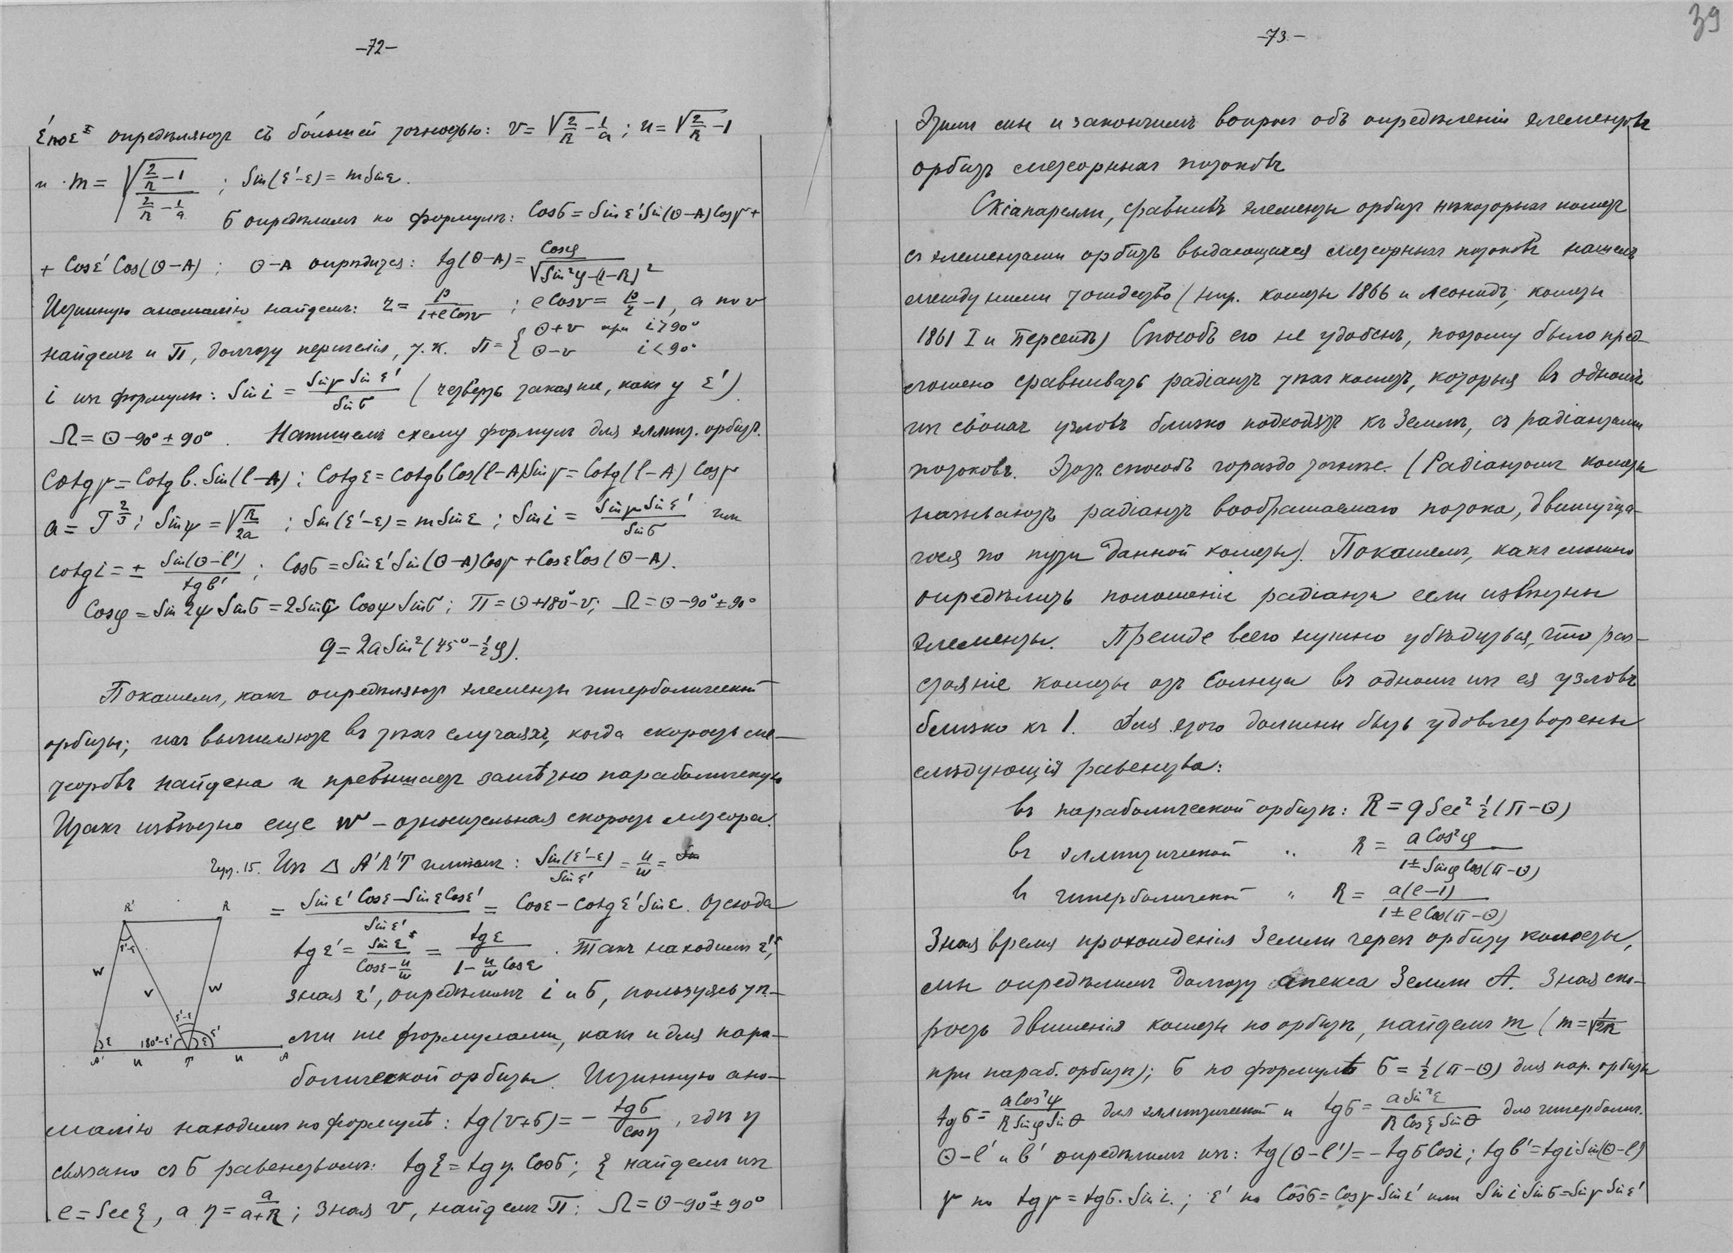 39
–72–
ε' по ε^x опредѣляютъ съ бо́льшей точностью: v = √(2/R − 1/a); u = √(2/R − 1)
и m = √((2/R − 1)/(2/R − 1/a)); Sin(ε'−ε) = m Sin ε.
σ опредѣлимъ по формулѣ: Cosσ = Sin ε' Sin(Θ−A) Cosγ +
+ Cosε' Cos(Θ−A); Θ−A опредѣлится: tg(Θ−A) = Cosφ / √(Sin²φ−(1−R)²)
Истинную аномалію найдемъ: r = p/(1+e Cosv); e Cosv = p/r − 1, а по v
найдемъ и П, долготу перигелія, т.к. П = { Θ+v при i>90°
Θ−v i<90°
i изъ формулы: Sin i = Sinγ Sin ε' / Sin σ (четверть такая же, какъ у ε').
Ω = Θ−90° ± 90°. Напишемъ схему формулъ для эллипт. орбитъ.
Cotgγ = Cotg b. Sin(l−A); Cotgε = cotgb Cos(l−A) Sinγ = Cotg(l−A) Cosγ
a = T^(2/3); Sinψ = √(R/2a); Sin(ε'−ε) = m Sinε; Sin i = Sinγ Sin ε' / Sinσ или
cotg i = ± Sin(Θ−l') / tg b'; Cosσ = Sin ε' Sin(Θ−A) Cosγ + Cosε' Cos(Θ−A).
Cosφ = Sin 2ψ Sinσ = 2Sinψ Cosψ Sinσ; П = Θ+180°−v; Ω = Θ−90° ± 90°
q = 2a Sin²(45° − ½φ).
Покажемъ, какъ опредѣляютъ элементы гиперболической
орбиты; ихъ вычисляютъ въ тѣхъ случаяхъ, когда скорость ме–
теоровъ найдена и превышаетъ замѣтно параболическую
Итакъ извѣстно еще W – относительная скорость метеора.
Черт. 15. Изъ Δ A'R'T имѣемъ: Sin(ε'−ε) / Sin ε' = u/w =
= (Sin ε' Cosε − Sin ε Cosε') / Sin ε' = Cosε − cotg ε' Sin ε. Отсюда
tg ε' = Sin ε / (Cosε − u/w) = tg ε / (1 − u/w Cosε). Такъ находимъ ε',
зная ε', опредѣлимъ i и σ, пользуясь тѣ–
ми же формулами, какъ и для пара–
болической орбиты. Истинную ано–
R' R
ε'−ε
W V W
ε'−ε
ε 180°−ε' ε ε'
A' u T u A
малію находимъ по формулѣ: tg(v+σ) = − tgσ / Cosη, гдѣ η
связано съ σ равенствомъ: tgξ = tg η. Cosσ; ξ найдемъ изъ
e = Sec ξ, а η = a/(a+R); зная v, найдемъ П: Ω = Θ−90° ± 90°
–73–
Этимъ мы и закончимъ вопросъ объ опредѣленіи элементовъ
орбитъ метеорныхъ потоковъ.
Скіапарелли, сравнивъ элементы орбитъ нѣкоторыхъ кометъ
съ элементами орбитъ выдающихся метеорныхъ потоковъ нашелъ
между ними тождество (напр. кометы 1866 и Леонидъ, кометы
1861 I и Персеидъ) Способъ его не удобенъ, поэтому было пред–
ложено сравнивать радіантъ тѣхъ кометъ, которыя въ одномъ
изъ своихъ узловъ близко подходятъ къ Землѣ, съ радіантами
потоковъ. Этотъ способъ гораздо точнѣе. (Радіантомъ кометы
называютъ радіантъ воображаемаго потока, движуща–
гося по пути данной кометы). Покажемъ, какъ можно
опредѣлить положеніе радіанта если извѣстны
элементы. Прежде всего нужно убѣдиться, что раз–
стояніе кометы отъ Солнца въ одномъ изъ ея узловъ
близко къ 1. Для этого должны быть удовлетворены
слѣдующія равенства:
въ параболической орбитѣ: R = q Sec² ½(π−Θ)
въ эллиптической " R = a Cos²φ / (1 ± Sinφ Cos(π−Θ))
въ гиперболической " R = a(e−1) / (1 ± e Cos(π−Θ))
Зная время прохожденія Земли черезъ орбиту кометы,
мы опредѣлимъ долготу апекса Земли A. Зная ско–
рость движенія кометы по орбитѣ, найдемъ m (m = 1/√2R
при параб. орбитѣ); σ по формулѣ σ = ½(π−Θ) для пар. орбиты
tgσ = a Cos²ψ / (R Sinφ Sin Θ) для эллиптической и tgσ = a Sin²ξ / (R Cosξ Sin Θ) для гиперболич.
Θ−l' и b' опредѣлимъ изъ: tg(Θ−l') = −tgσ Cos i; tg b' = tg i Sin(Θ−l')
γ по tgγ = tgσ. Sin i.; ε' по Cosσ = Cosγ Sin ε' или Sin i Sin σ = Sinγ Sin ε'